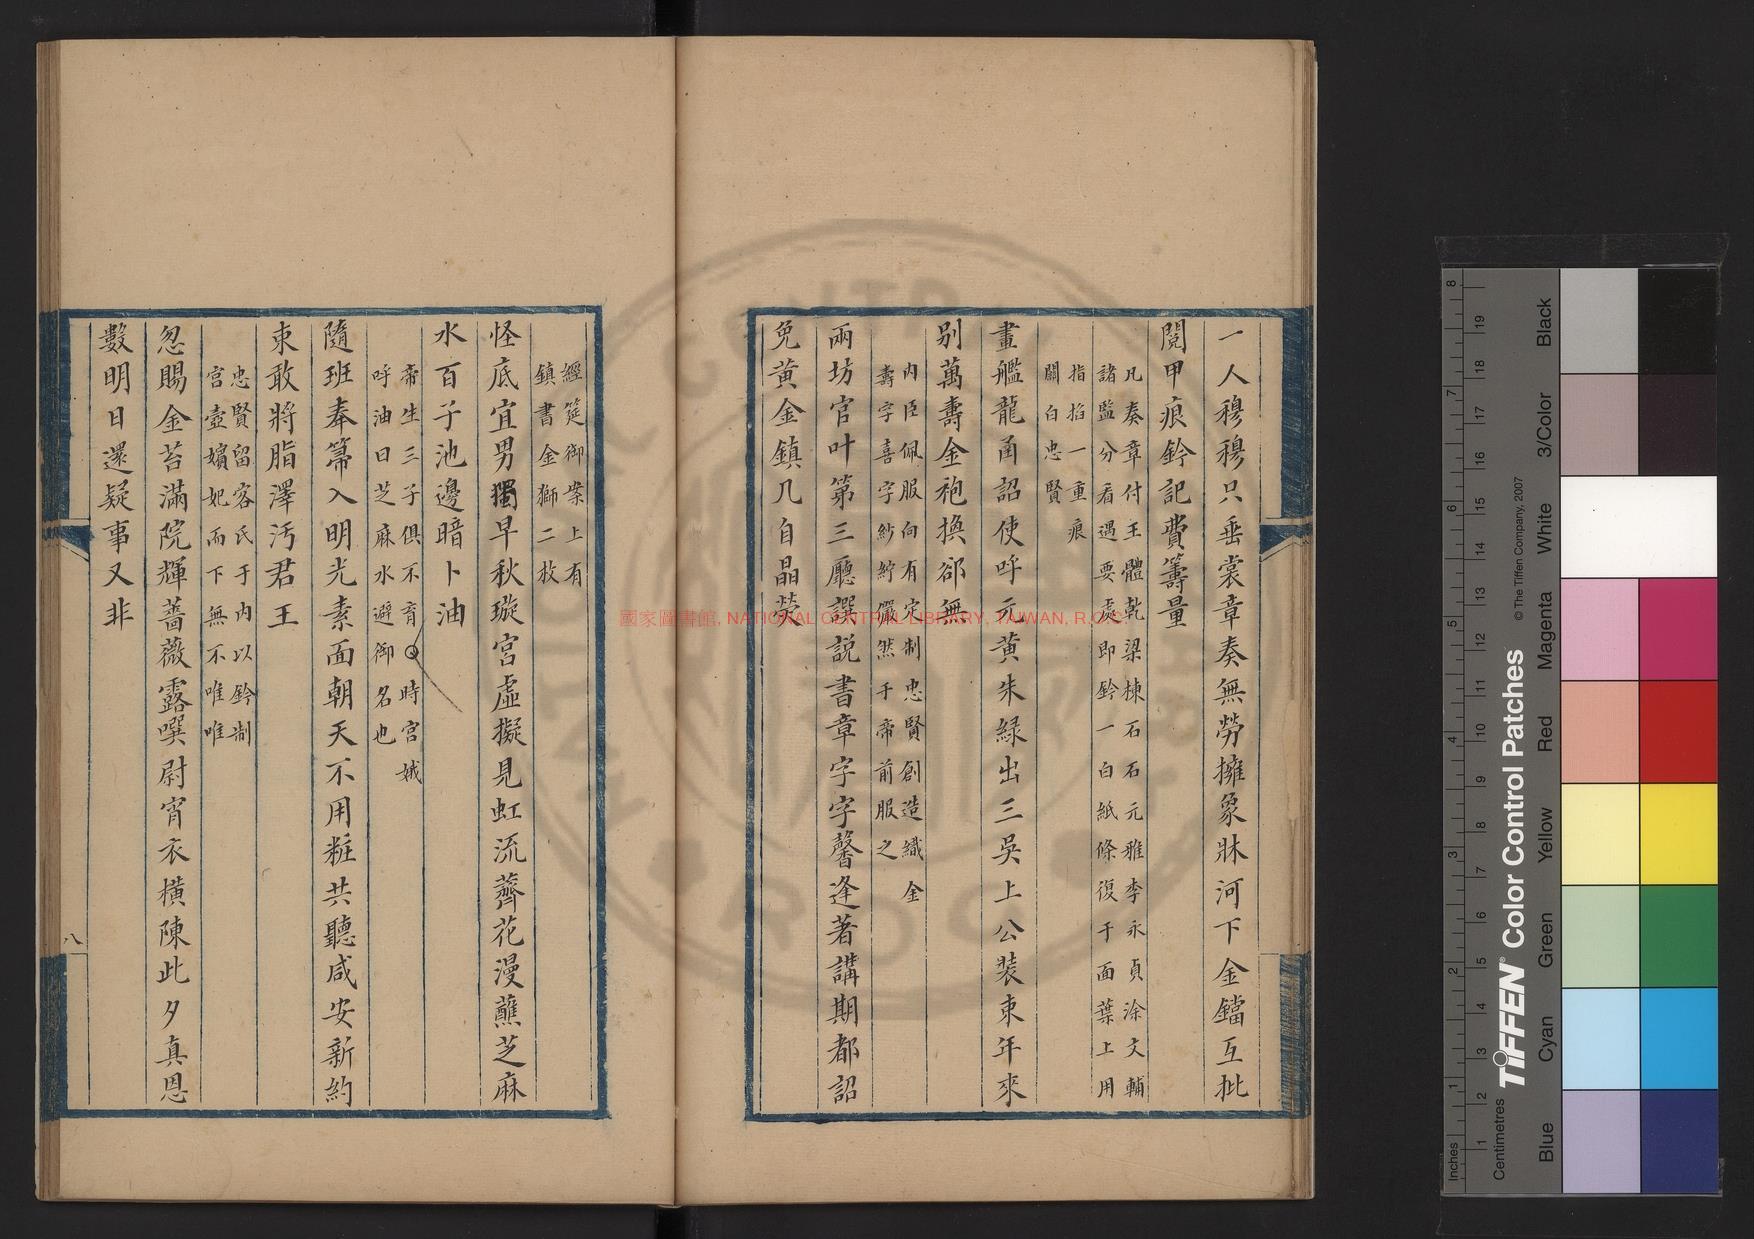 一人穆穆只垂裳章奏無勞擁象牀河下金鐺互批
閱甲痕鈐記費籌量
凡奏章付王體乾梁棟石石元雅李永貞涂文輔
諸監分看遇要處即鈐一白紙條復于面葉上用
指掐一重痕
關白忠賢
畫艦龍函詔使呼元黃朱綠出三吳上公裝束年來
别萬壽金袍換卻無
内臣佩服向有定制忠賢創造織金
壽字喜字紗紵儼然于帝前服之
兩坊官叶第三廳譔説書章字字馨逢著講期都詔
免黄金鎮几自晶熒
經筵御案上有
鎮書金獅二枚
怪底宜男獨早秋璇宮虛擬見虹流薺花漫蘸芝麻
水百子池邊暗卜油
帝生三子俱不育時宮娥
呼油曰芝麻水避御名也
隨班奉箒入明光素面朝天不用粧共聽咸安新約
束敢將脂澤汚君王
忠賢留客氏于内以鈐制
宮壼嬪妃而下無不唯唯
忽賜金苔滿院輝薔薇露噀尉宵衣橫陳此夕真恩
數明日還疑事又非
八
國家圖書館, NATIONAL CENTRAL LIBRARY, TAIWAN, R.O.C.
Inches
Centimetres
TIFFEN® Color Control Patches
© The Tiffen Company, 2007
Blue
Cyan
Green
Yellow
Red
Magenta
White
3/Color
Black